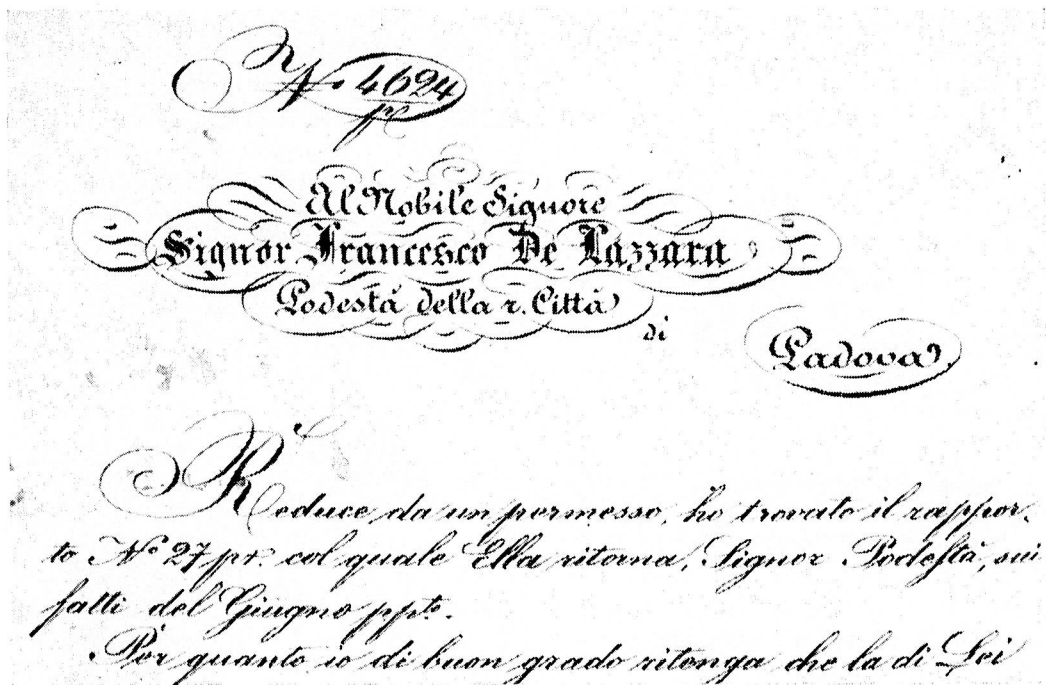 N° 4624
pr
Al Nobile Signore
Signor Francesco De Lazzara
Podestà della r. Città
di
Padova
Reduce da un permesso, ho trovato il rappor-
to N° 27 pr. col quale Ella ritorna, Signor Podestà, sui
fatti del Giugno ppto.
Per quanto io di buon grado ritenga che la di Lei